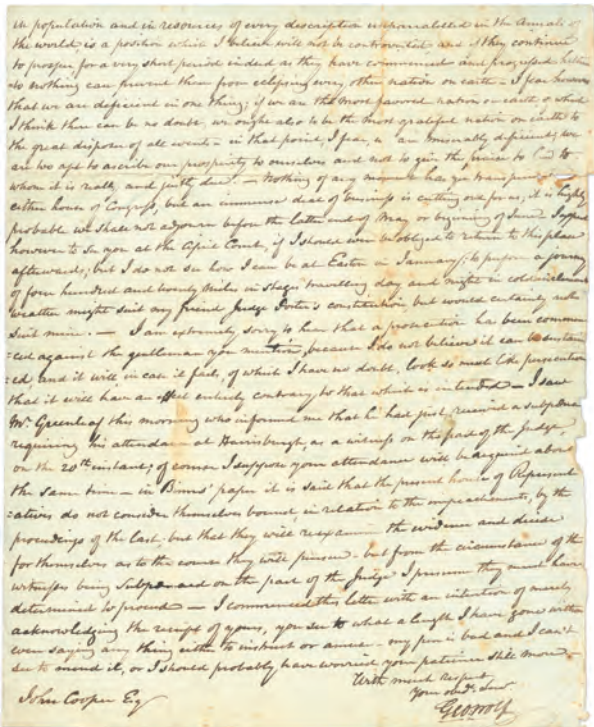 in population and in resources of every description unparalelled in the Annals of
the world, is a position which I believe will not be controverted and if they continue
to prosper for a very short period indeed as they have commenced and progressed hither
-to nothing can prevent them from eclipsing every other nation on earth - I fear however
that we are deficient in one thing; if we are the most favored nation on earth, of which
I think there can be no doubt, we ought also to be the most grateful nation on earth to
the great disposer of all events - in that point, I fear, we are miserably deficient; we
are too apt to ascribe our prosperity to ourselves and not to give the praise to Him to
whom it is really and justly due. - Nothing of any moment has yet transpired in
either house of Congress, but an immense deal of business is cutting out for us, it is highly
probable we shall not adjourn before the latter end of May or beginning of June. I expect
however to see you at the April Court, if I should even be obliged to return to this place
afterwards, but I do not see how I can be at Easton in January; to perform a journey
of four hundred and twenty miles in stages travelling day and night in cold inclement
weather might suit my friend Judge Porter's constitution but would certainly not
suit mine. - I am extremely sorry to hear that a prosecution has been commen
=ced against the gentleman you mention, because I do not believe it can be sustain
=ed, and it will in case it fail, of which I have no doubt, look so much like persecution
that it will have an effect entirely contrary to that which is intended - I saw
Mr. Greenleaf this morning who informed me that he had just received a subpoena
requiring his attendance at Harrisburgh, as a witness on the part of the Judge,
on the 20th instant; of course I suppose your attendance will be required about
the same time - in Binns' paper it is said that the present house of Represent
=atives do not consider themselves bound, in relation to the impeachments, by the
proceedings of the last, but that they will reexamine the evidence and decide
for themselves as to the course they will pursue - but from the circumstance of the
witnesses being Subpoenaed on the part of the Judge I presume they must have
determined to proceed - I commenced this letter with an intention of merely
acknowledging the receipt of yours, you see to what a length I have gone without
even saying any thing either to instruct or amuse - my pen is bad and I can't
see to mend it, or I should probably have worried your patience still more -
With much respect
Your obedt. Servt
John Cooper Esq
Geo Wolf